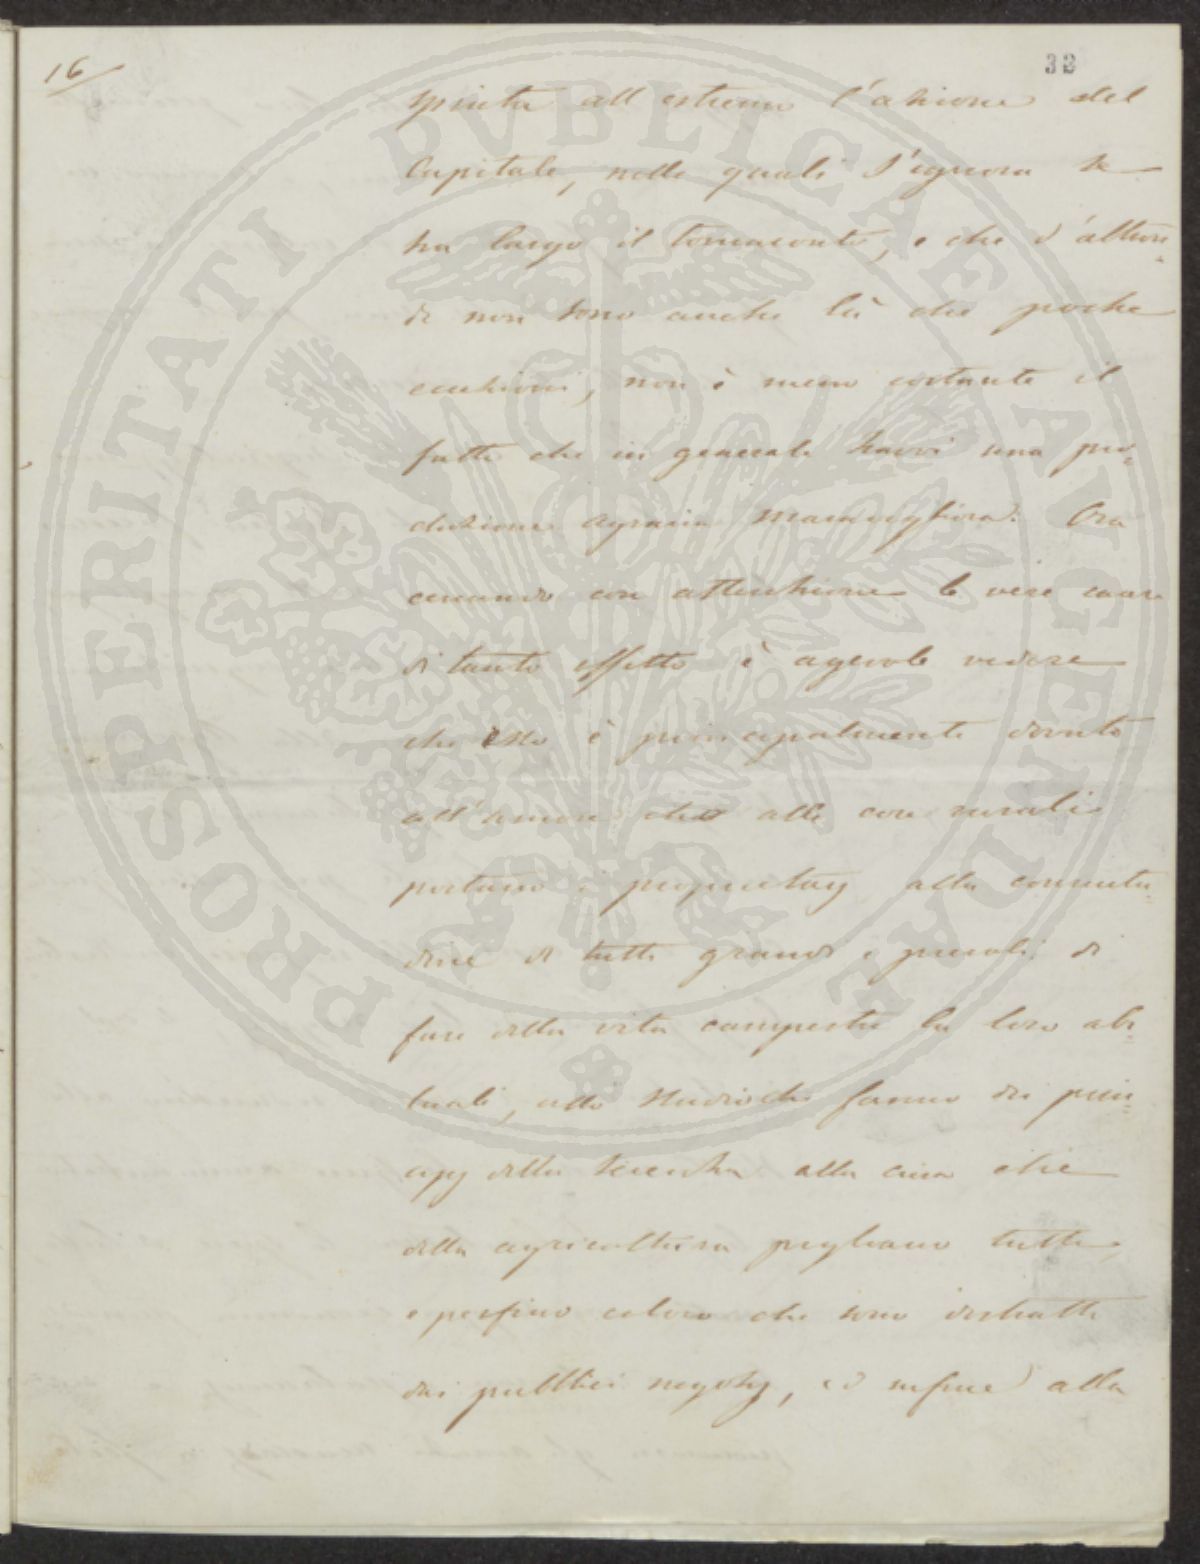 16/
32
spinta all'estremo l'azione del
Capitale, nelle quali s'ignora se
ha luogo il tornaconto, e che d'altron=
de non sono anche là che poche
eccezioni, non è meno costante il
fatto che in generale havvi una pro=
duzione agraria maravigliosa. Ora
cercando con attenzione le vere cause
di tanto effetto è agevole vedere
che esso è principalmente dovuto
all'amore che alle cose rurali
portano i proprietarj alla consuetu=
dine di tutti grandi e piccoli di
fare della vita campestre la loro abi=
tuale, allo studio che fanno dei prin=
cipj della scienza alla cura che
della agricoltura pigliano tutti,
e perfino coloro che sono distratti
dai pubblici negozj, ed infine alla
PROSPERITATI PVBLICAE AVGENDAE